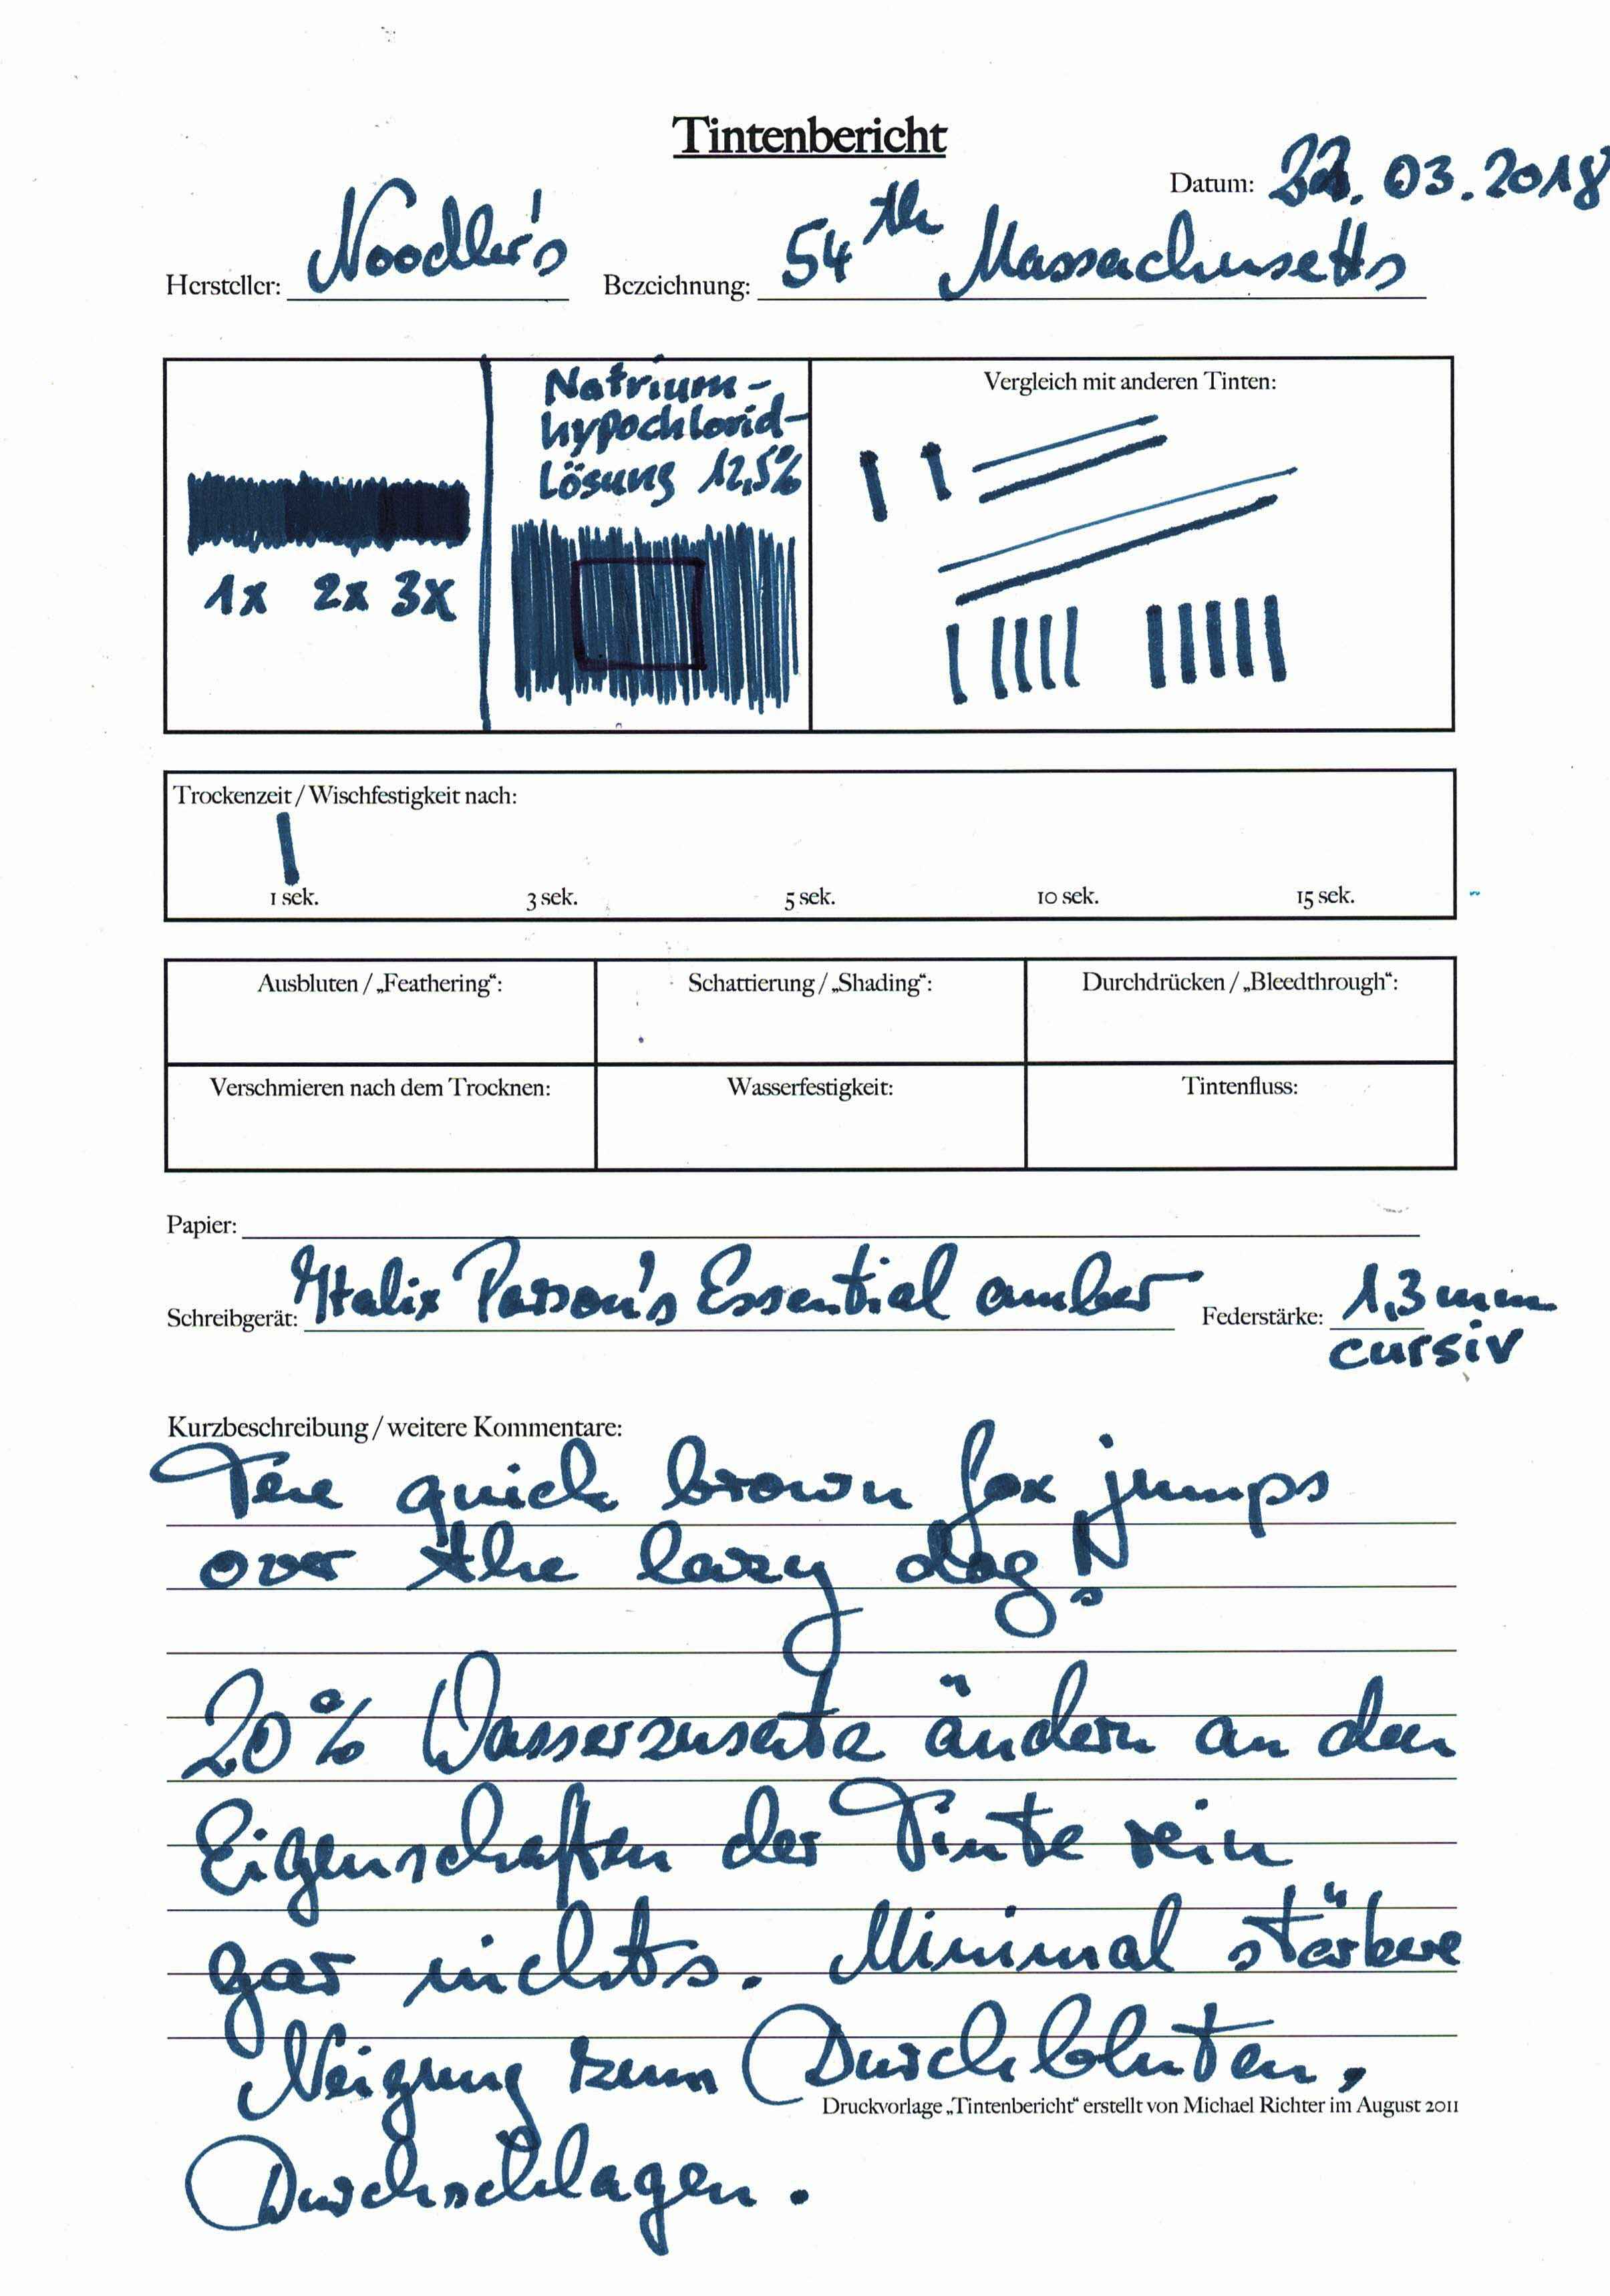 Tintenbericht
Datum: 22.03.2018
Hersteller: Noodler's Bezeichnung: 54th Massachusetts
Natrium-
hypochlorid-
Lösung 12,5%
1x 2x 3x
Vergleich mit anderen Tinten:
Trockenzeit / Wischfestigkeit nach:
1 sek. 3 sek. 5 sek. 10 sek. 15 sek.
Ausbluten / „Feathering“: Schattierung / „Shading“: Durchdrücken / „Bleedthrough“:
Verschmieren nach dem Trocknen: Wasserfestigkeit: Tintenfluss:
Papier:
Schreibgerät: Italix Parson's Essential amber Federstärke: 1,3 mm
cursiv
Kurzbeschreibung / weitere Kommentare:
The quick brown fox jumps
over the lazy dog!
20% Wasserzusatz ändern an den
Eigenschaften der Tinte rein
gar nichts. Minimal stärkere
Neigung zum Durchbluten,
Druckvorlage „Tintenbericht“ erstellt von Michael Richter im August 2011
Durchschlagen.